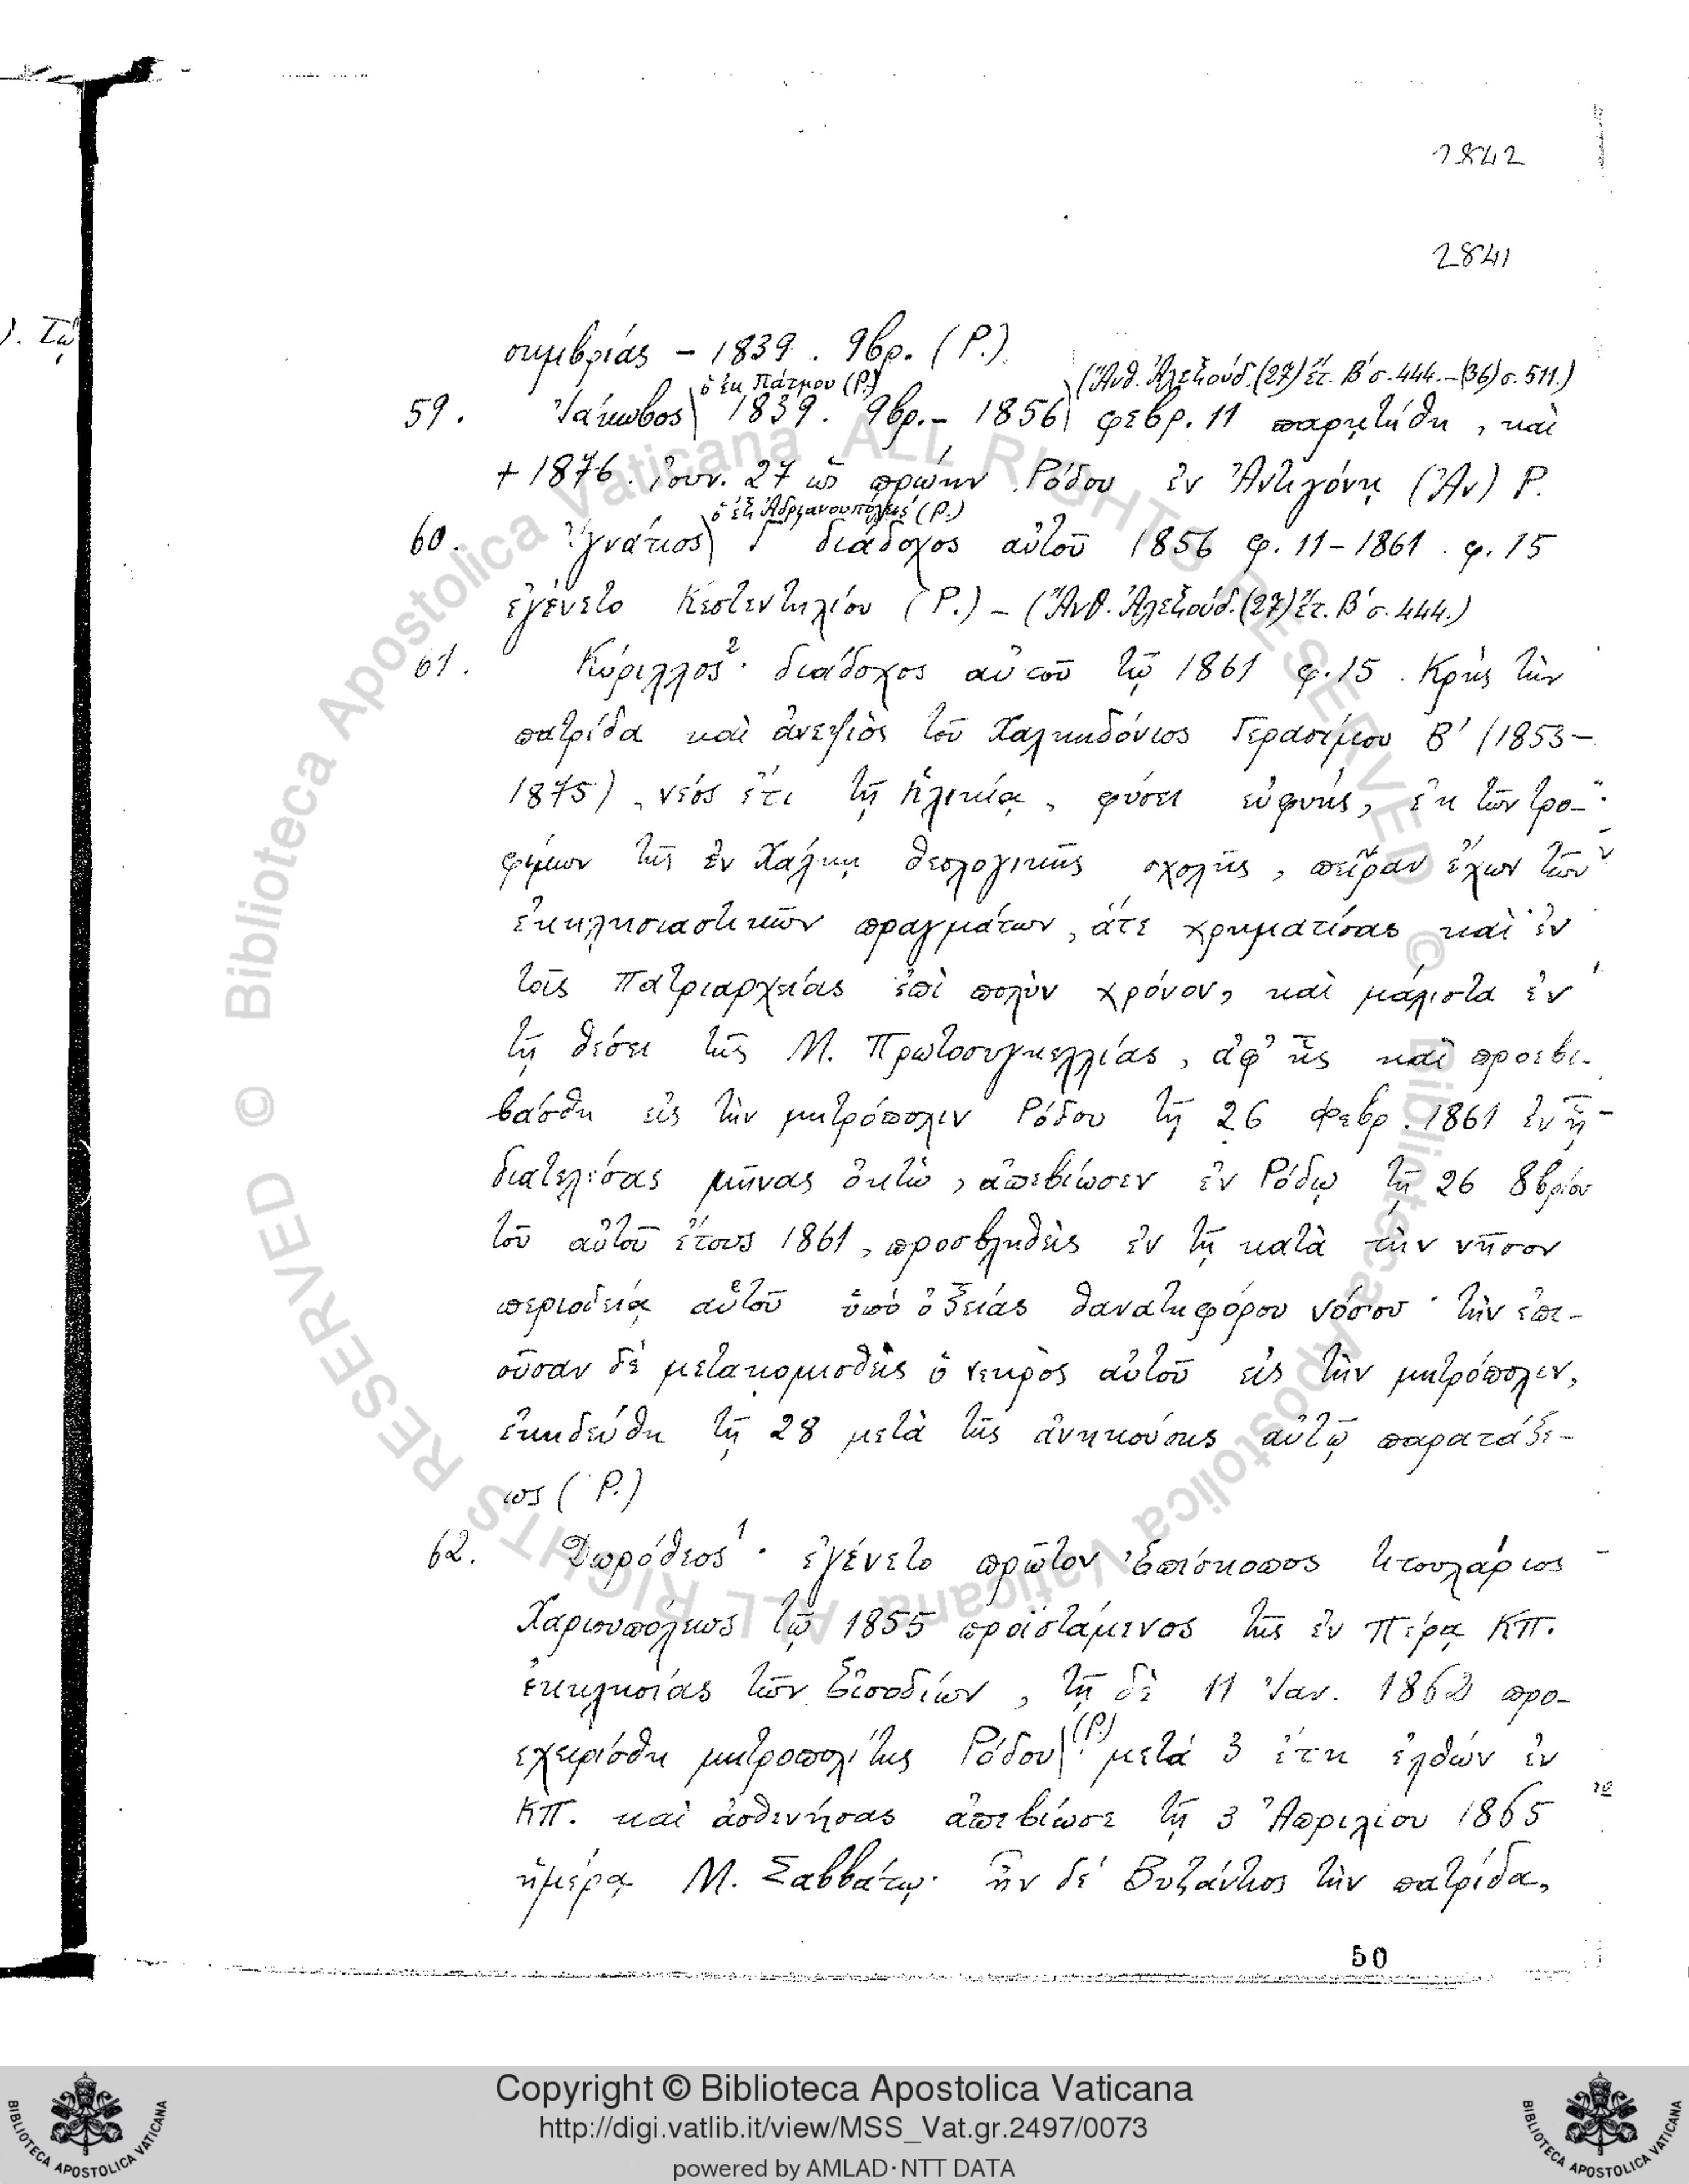 2842
2841
). Τῷ
συμβρίας – 1839. 9βρ. (Ρ.)
ὁ ἐκ Πάτμου (Ρ.) (Ἀνθ. Ἀλεξούδ. (27) ἔτ. Β΄ σ. 444. – (36) σ. 511.)
59. Ἰάκωβος 1839. 9βρ. – 1856 φεβρ. 11 παρῃτήθη, καὶ
+ 1876. Ἰουν. 27 ὡς πρώην Ρόδου ἐν Ἀντιγόνῃ (Ἀν) Ρ.
ὁ ἐξ Ἀδριανουπόλεως (Ρ.)
60. Ἰγνάτιος διάδοχος αὐτοῦ 1856 φ. 11 – 1861. φ. 15
ἐγένετο Κεστεντηλίου (Ρ.) – (Ἀνθ. Ἀλεξούδ. (27) ἔτ. Β΄ σ. 444.)
61. Κύριλλος 2· διάδοχος αὐτοῦ τῷ 1861 φ. 15. Κρὴς τὴν
πατρίδα καὶ ἀνεψιὸς τοῦ Χαλκηδόνιος Γερασίμου Β΄ (1853–
1875), νέος ἔτι τῇ ἡλικίᾳ, φύσει εὐφυής, ἐκ τῶν τρο-
φίμων τῆς ἐν Χάλκῃ θεολογικῆς σχολῆς, πεῖραν ἔχων τῶν
ἐκκλησιαστικῶν πραγμάτων, ἅτε χρηματίσας καὶ ἐν
τοῖς Πατριαρχείοις ἐπὶ πολὺν χρόνον, καὶ μάλιστα ἐν
τῇ θέσει τῆς Μ. Πρωτοσυγκελλίας, ἀφ᾽ ἧς καὶ προεβι-
βάσθη εἰς τὴν μητρόπολιν Ρόδου τῇ 26 Φεβρ. 1861 ἐν ᾗ
διατελέσας μῆνας ὀκτώ, ἀπεβίωσεν ἐν Ρόδῳ τῇ 26 8βρίου
τοῦ αὐτοῦ ἔτους 1861, προσβληθεὶς ἐν τῇ κατὰ τὴν νῆσον
περιοδείᾳ αὐτοῦ ὑπὸ ὀξείας θανατηφόρου νόσου· τὴν ἐπι-
οῦσαν δὲ μετακομισθεὶς ὁ νεκρὸς αὐτοῦ εἰς τὴν μητρόπολιν,
ἐκηδεύθη τῇ 28 μετὰ τῆς ἀνηκούσης αὐτῷ παρατάξε-
ως (Ρ.)
62. Δωρόθεος 1· ἐγένετο πρῶτον ἐπίσκοπος τιτουλάριος
Χαριουπόλεως τῷ 1855 προϊστάμενος τῆς ἐν Πέρᾳ ΚΠ.
ἐκκλησίας τῶν Εἰσοδίων, τῇ δὲ 11 Ἰαν. 1862 προ-
εχειρίσθη μητροπολίτης Ρόδου (Ρ.)· μετά 3 ἔτη ἐλθών ἐν
ΚΠ. καὶ ἀσθενήσας ἀπεβίωσε τῇ 3 Ἀπριλίου 1865
ἡμέρᾳ Μ. Σαββάτῳ· ἦν δέ Βυζάντιος τὴν πατρίδα,
50
© Biblioteca Apostolica Vaticana ALL RIGHTS RESERVED © Biblioteca Apostolica Vaticana ALL RIGHTS RESERVED
BIBLIOTECA APOSTOLICA VATICANA
Copyright © Biblioteca Apostolica Vaticana
http://digi.vatlib.it/view/MSS_Vat.gr.2497/0073
powered by AMLAD·NTT DATA
BIBLIOTECA APOSTOLICA VATICANA